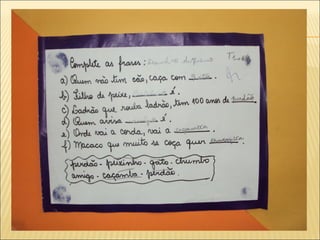 Complete as frases:
a) Quem não tem cão, caça com gato.
b) Filho de peixe, peixinho é.
c) Ladrão que rouba ladrão, tem 100 anos de perdão.
d) Quem avisa amigo é.
e) Onde vai a corda, vai a caçamba.
f) Macaco que muito se coça quer chumbo.
perdão - peixinho - gato - chumbo
amigo - caçamba - perdão.